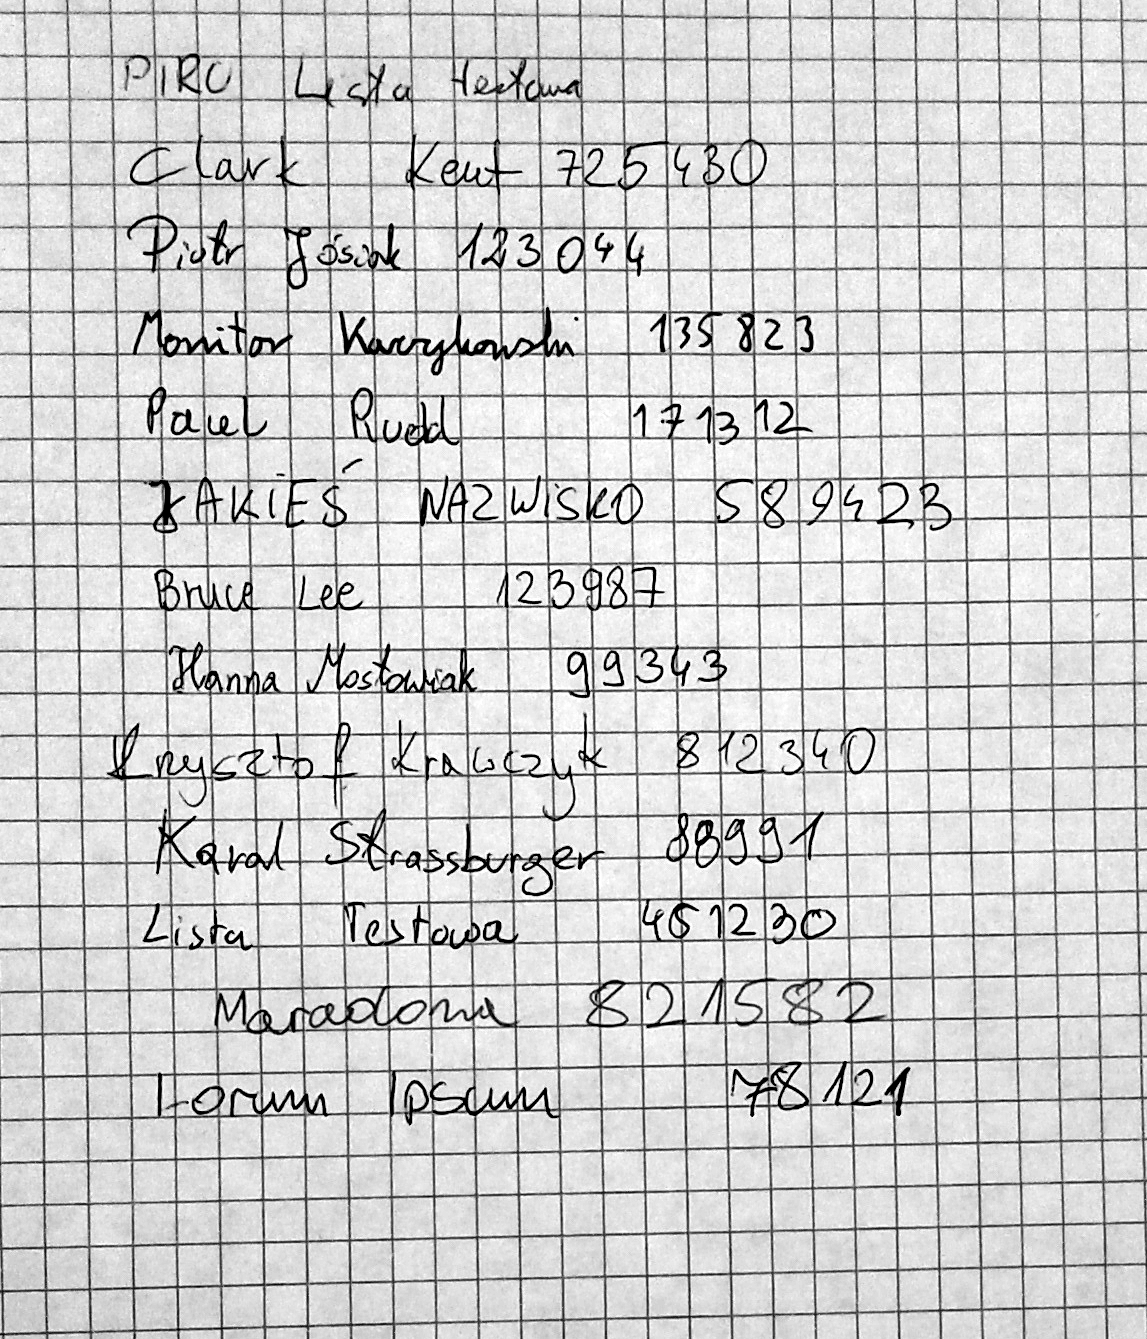 PIRO Lista testowa
Clark Kent 725430
Piotr Jósiak 123044
Monitor Karrykowski 135823
Paul Rudd 171312
JAKIEŚ NAZWISKO 589423
Bruce Lee 123987
Hanna Mostowiak 99343
Krzysztof Krawczyk 812340
Karol Strassburger 88991
Lista Testowa 461230
Maradona 821582
Lorum Ipsum 78121